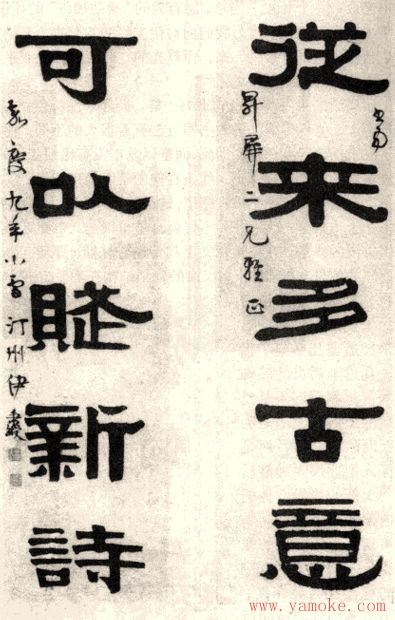 從來多古意
昇屏二兄雅正
可以賦新詩
嘉慶九年小雪汀州伊秉綬
www.yamoke.com